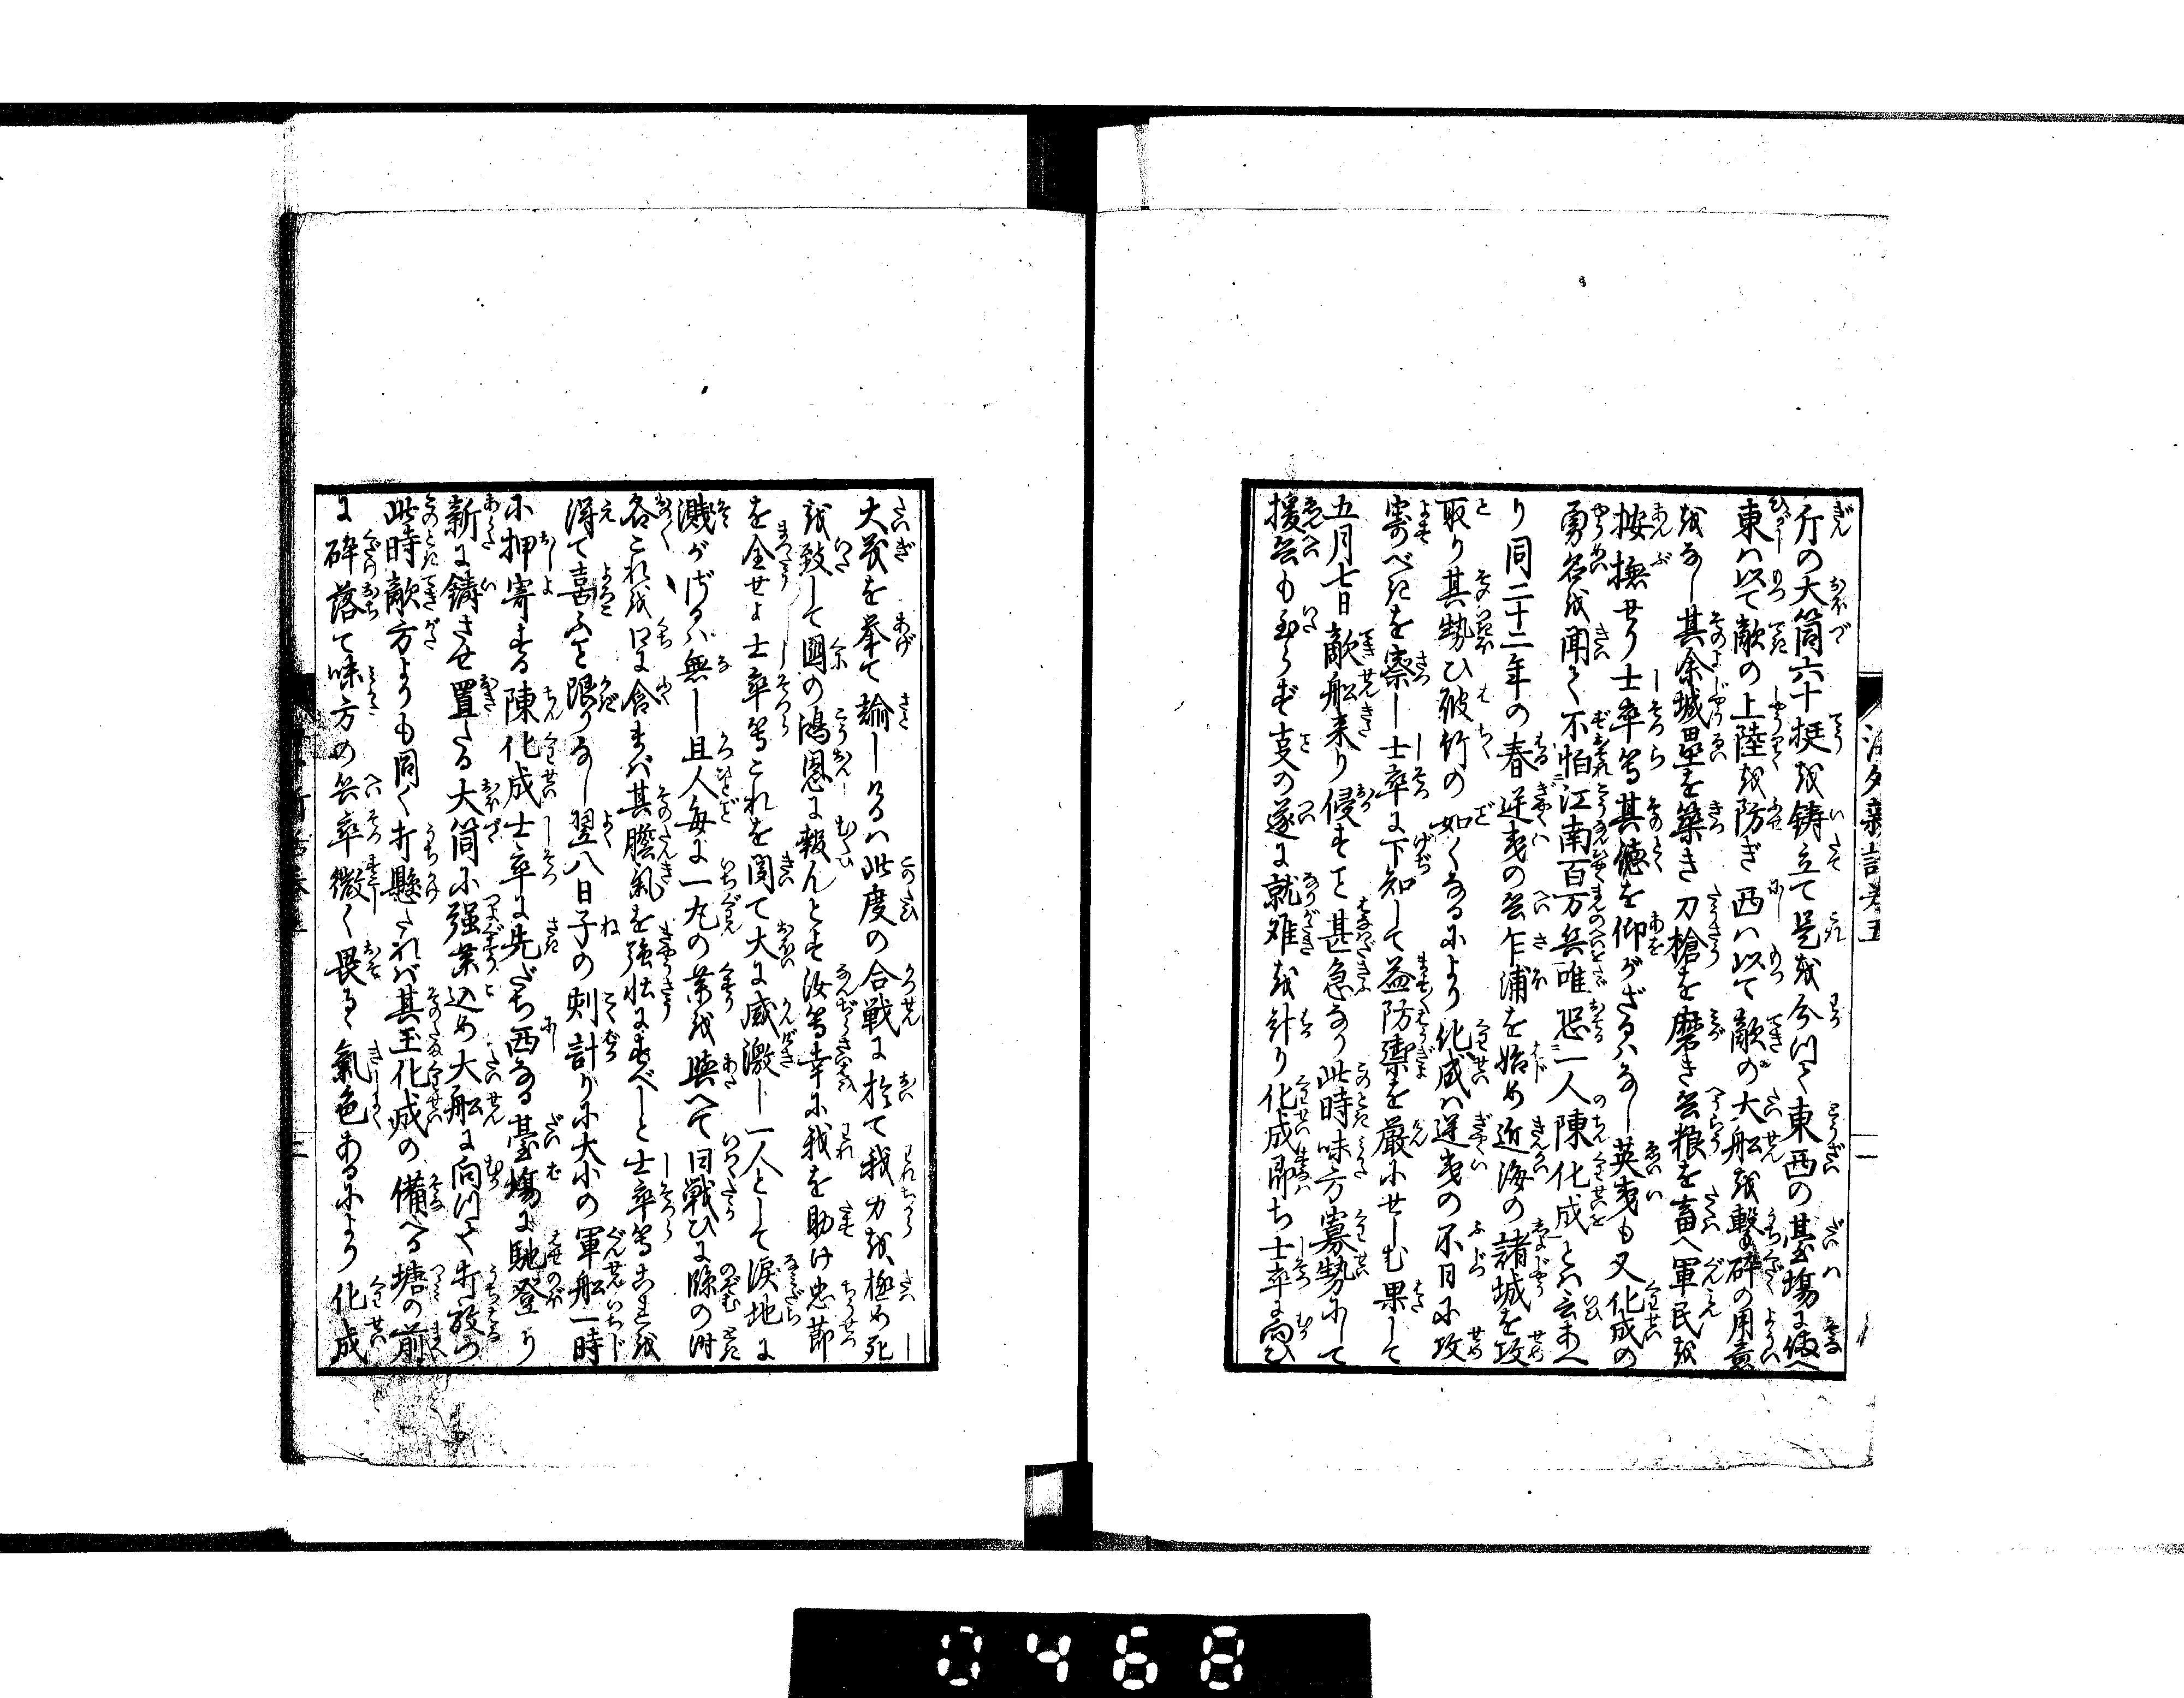 斤の大筒六十挺を鋳立て是を分川て東西の臺塲に備へ
東ハ以て敵の上陸を防ぎ西ハ以て敵の大舩を撃碎の用意
をなし其余城塁を築き刀槍を磨き兵粮を畜へ軍民を
按撫せり士卒等其徳を仰がざるハなし英夷も又化成の
勇名を聞て不怕江南百万兵唯恐一人陳化成とハ云あへ
り同二十二年の春逆夷の兵乍浦を始め近海の諸城を攻
取り其勢ひ破竹の如くなるにより化成ハ逆夷の不日に攻
寄べきを察し士卒に下知して益防禦を嚴にせしむ果して
五月七日敵舩来り侵すこと甚急なり此時味方寡勢にして
援兵も到らず支の遂に就難を計り化成即ち士卒に向ひ
大義を挙て諭しけるハ此度の合戦に於て我力を極め死
を致して國の鴻恩に報んとす汝等幸に我を助け忠節
を全せよ士卒等これを聞て大に感激し一人として涙地に
濺がざるハ無し且人毎に一丸の薬を與へて曰戦ひに臨の時
各これを口に含まバ其膽氣を強壮にすべしと士卒等これを
得て喜ふこと限りなし翌八日子の刻計りに大小の軍舩一時
に押寄する陳化成士卒に先だち西なる臺塲に馳登り
新に鋳させ置たる大筒に强薬込め大舩に向川て打放つ
此時敵方よりも同く打懸たれバ其玉化成の備へる塘の前
に碎落て味方の兵卒微く畏るゝ氣色あるにより化成
0468